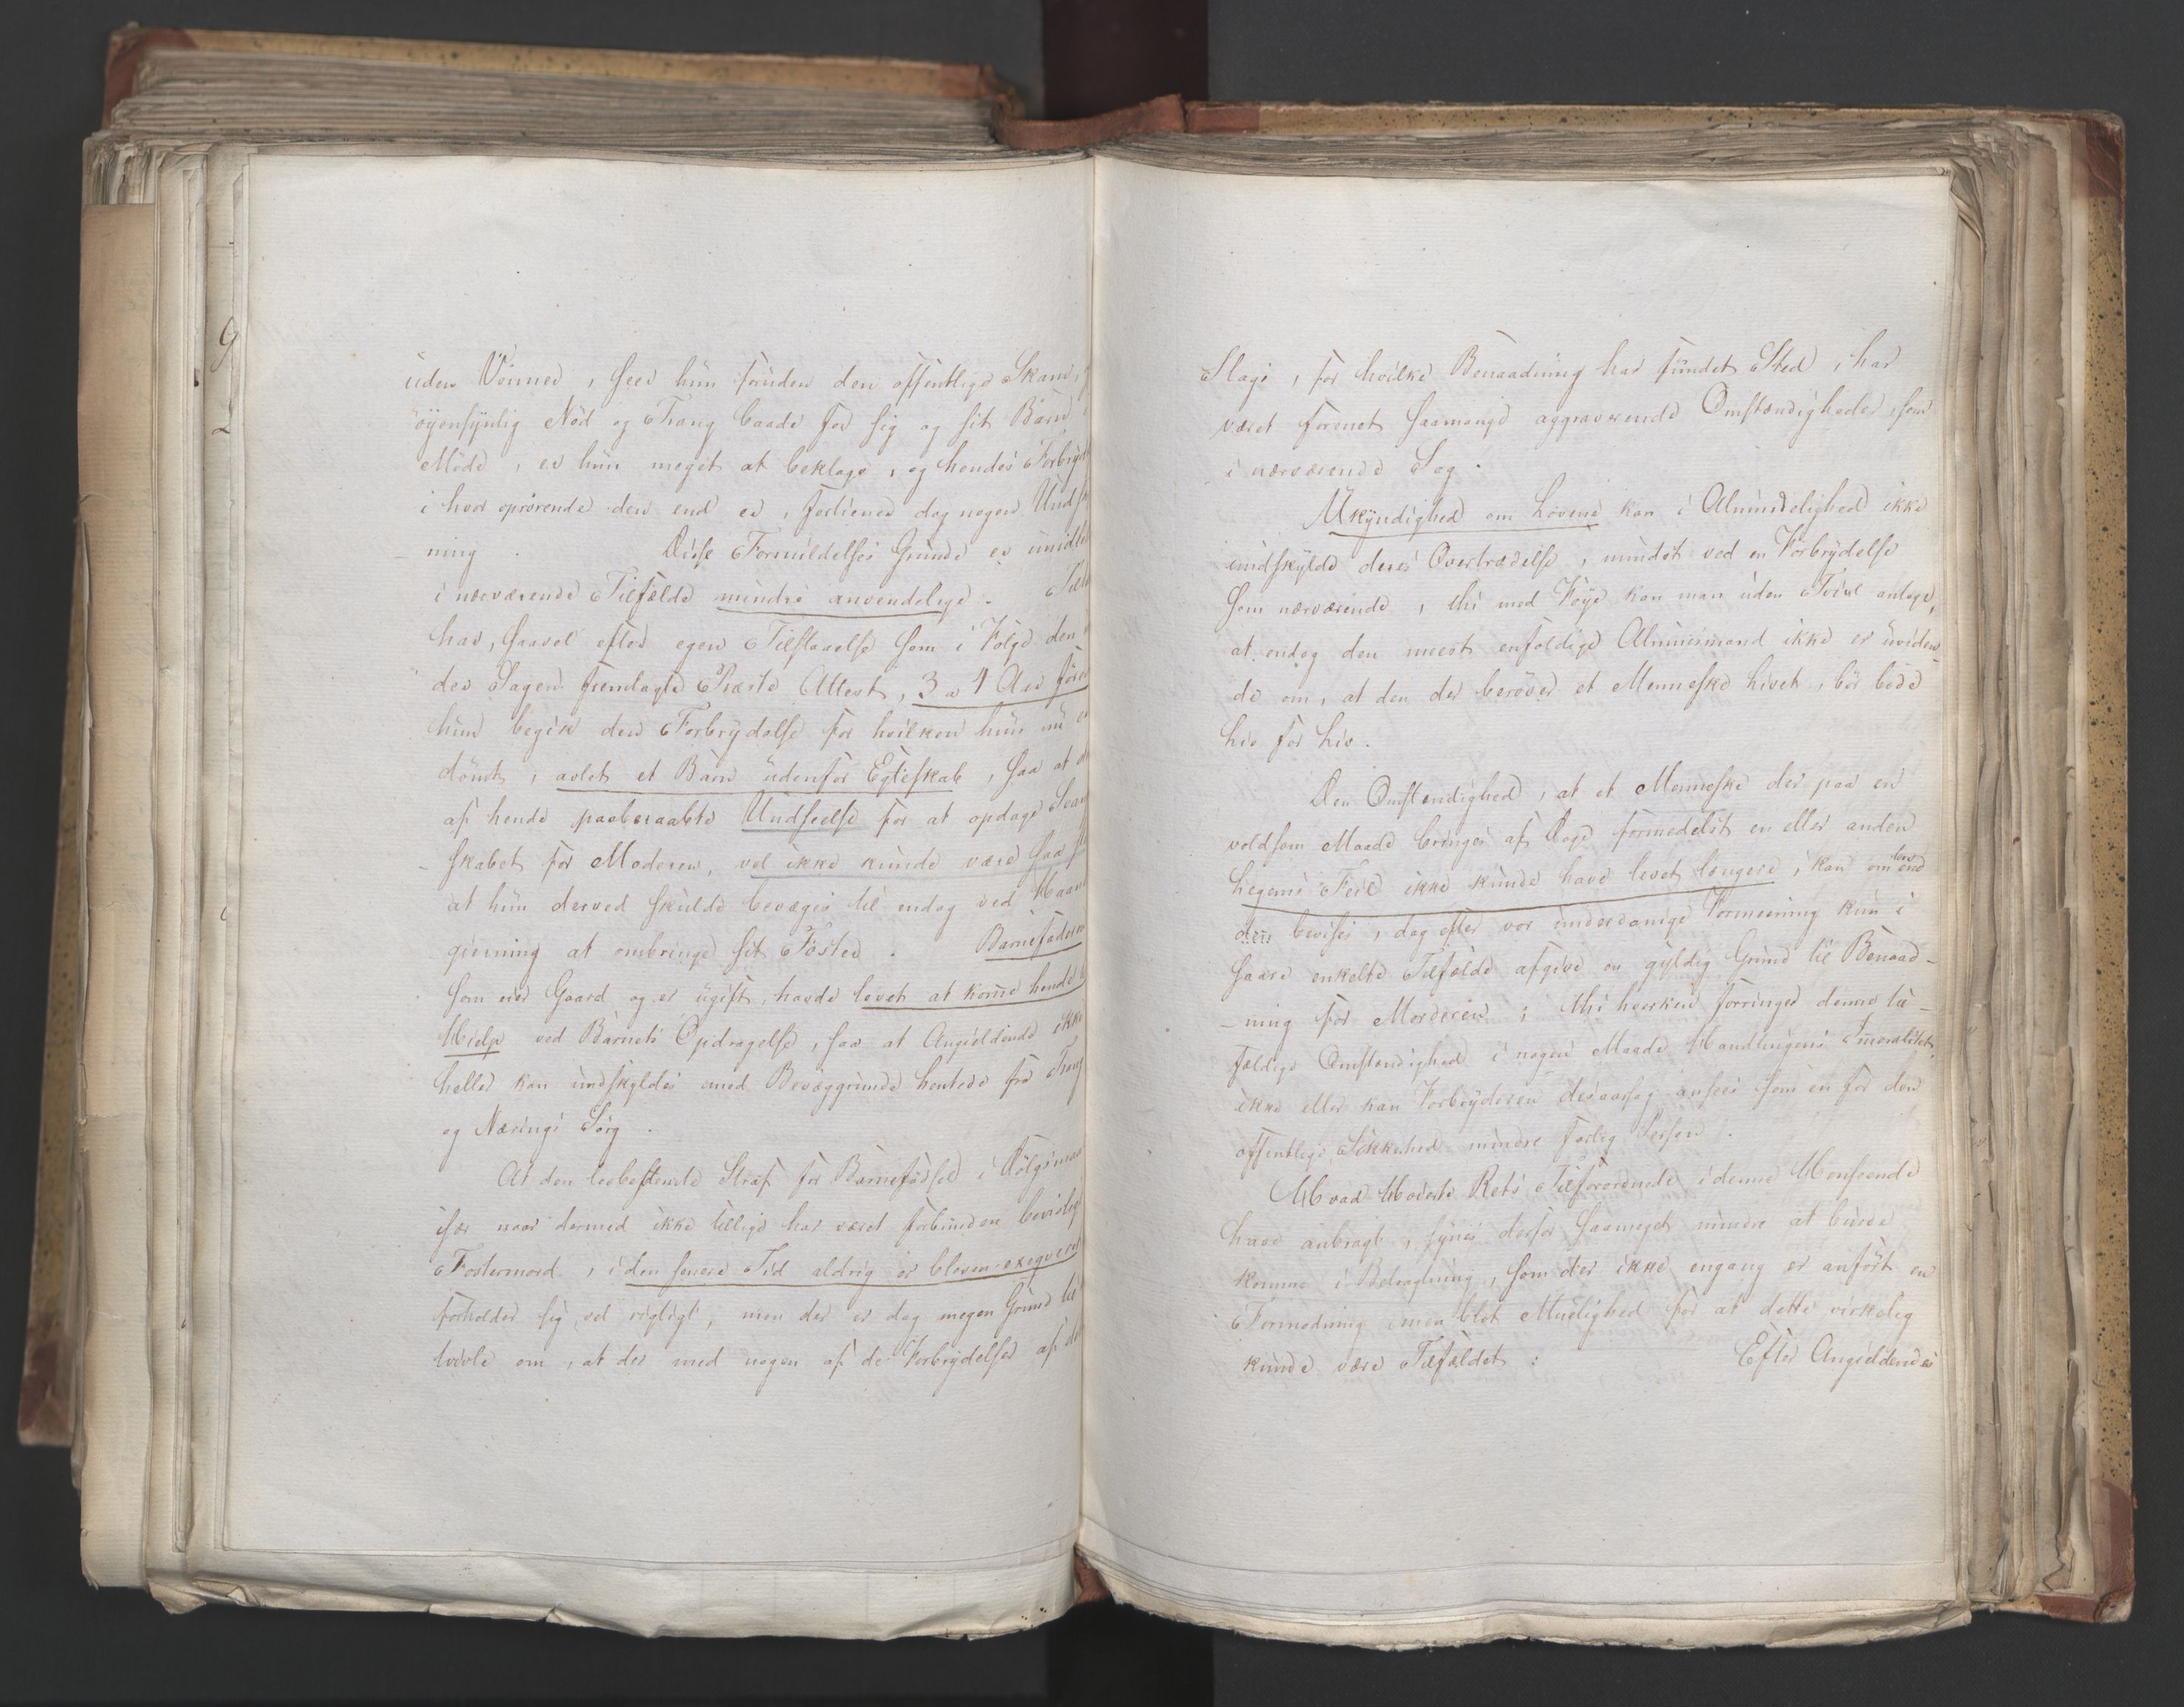 uden Venner, seer hun foruden den offentlige Skam,
öyensynlig Nöd og Trang baade for sig og sit Barn i
Möde, er hun meget at beklage, og hendes Forbryd
i hvor oprörende den end er, fortiener dog nogen Undsk
ning. Disse Formildelses Grunde er imidl
i nærværende Tilfælde mindre anvendelige.
har, saavel efter egen Tilstaaelse som i Fölge den
der Sagen fremlagte Præste Attest, 3 a 4 Aar för
hun begik den Forbrydelse for hvilken hun nu er
dömt, avlet et Barn udenfor Egteskab, saa at
af hende paaberaabte Undseelse for at opdage Svang
skabet for Moderen, vel ikke kunde være saa
at hun derved skulde bevæges til endog ved Haand
gierning at ombringe sit Foster. Barnefaderen
som eier Gaard og er ugift, havde lovet at komme hende
Hielp ved Barnets Opdragelse, saa at Angieldende ikke
heller kan undskyldes med Bevæggrunde hentede fra Trang
og Nærings Sorg.
At den lovbestemte Straf for Barnefödsel i Dölgsmaal
især naar dermed ikke tillige har været forbunden beviislig
Fostermord, i den senere Tid aldrig er bleven exeqveret
forholder sig vel rigtigt, men der er dog megen Grund til
tvivle om, at der med nogen af de Forbrydelser af
Slags, for hvilke Benaadning har fundet Sted, har
været forenet saamange aggraverende Omstændigheder, som
i nærværende Sag.
Ukyndighed om Lovene kan i Almindelighed ikke
undskylde deres Overtrædelse, mindst ved en Forbrydelse
som nærværende, thi med Föye kan man uden Tvivl antage,
at endog den meest enfoldige Almuesmand ikke er uviden-
de om, at den der beröver et Menneske Livet, bör böde
Liv for Liv.
Den Omstændighed, at et Menneske der paa en
voldsom Maade bringes af Dage formedelst en eller anden
Legems Feil ikke kunde have levet længere, kan om end
den bevises, dog efter vor underdanige Formeening kun i
saare enkelte Tilfælde afgive en gyldig Grund til Benaad-
-ning for Morderen; thi hverken forringer denne til-
fældige Omstændighed i nogen Maade Handlingens Immoralitet,
ikke eller kan Forbryderen desaarsag ansees som en for den
offentlige Sikkerhed mindre farlig Person.
Hvad Höieste Rets Tilforordnede i denne Henseende
have anbragt, synes derfor saameget mindre at burde
komme i Betragtning, som der ikke engang er anfört en
Formodning men blot Muelighed for at dette virkelig
kunde være Tilfældet: Efter Angieldendes